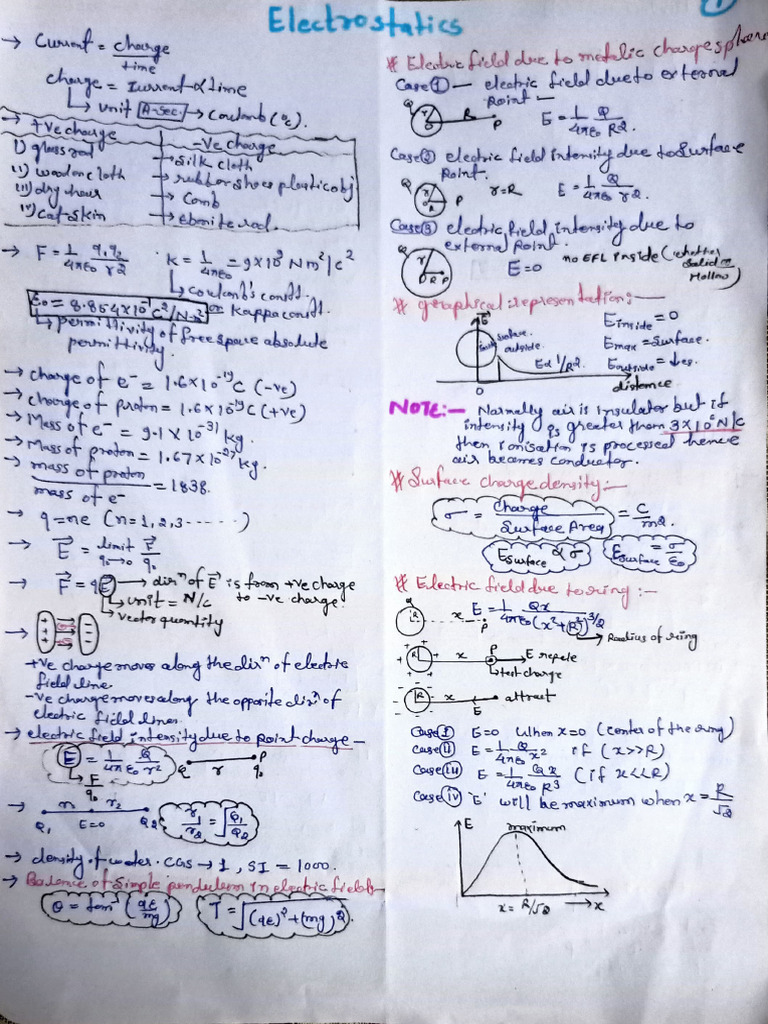 Electrostatics
1
→ Current = charge/time
charge = current × time
↳ unit A-sec → coulomb (c).
→ +ve charge | -ve charge
i) glass rod → silk cloth
ii) woolen cloth → rubber shoes plastic obj
iii) dry hair → comb
iv) cat skin → ebonite rod.
→ F = 1/4πε₀ q₁q₂/r2 . K = 1/4πε₀ = 9×10⁹ Nm²/c²
↳ coulomb's const. or Kappa const.
ε₀ = 8.854×10⁻¹²c²/N-m²
↳ permittivity of free space absolute
permittivity.
→ charge of e⁻ = 1.6×10⁻¹⁹ C (-ve)
→ charge of proton = 1.6×10⁻¹⁹ C (+ve)
→ Mass of e⁻ = 9.1 × 10⁻³¹ kg.
→ Mass of proton = 1.67×10⁻²⁷ kg.
→ mass of proton/mass of e⁻ = 1838.
→ q = ne (n = 1, 2, 3 ------)
→ E⃗ = limit q₀→0 F⃗/q₀
→ F⃗ = qE⃗ → dirⁿ of E⃗ is from +ve charge
to -ve charge.
↳ unit = N/c
↳ vector quantity
→ + + + - - -
+ve charge moves along the dirⁿ of electric
field line.
-ve charge moves along the opposite dirⁿ of
electric field lines.
→ electric field intensity due to point charge -
E = 1/4πε₀ Q/r² Q r P q₀
↓ F/q₀
→ r₁ r₂ Q₁ E=0 Q₂ r₁/r₂ = √Q₁/Q₂
→ density of water . CGS → 1 , SI = 1000.
→ Balance of simple pendulum in electric field -
θ = tan⁻ (qE/mg) T = √(qE)²+(mg)2.
# Electric field due to metalic charge sphere
Case ① - electric field due to external
point -
Q r R P E = 1/4πε₀ Q/R2.
Case ② electric field intensity due to surface
point.
Q r R P r=R E = 1/4πε₀ Q/r2.
Case ③ electric field intensity due to
external point.
Q r R P E=0 no EFL inside (whether solid or Hollow)
# graphical representation: -
E⃗ surface. outside. E∝1/R2. 0 distance
E inside = 0
E max = surface.
E outside = ↓es.
NOTE:- Normally air is insulator but if
intensity is greater them 3×10⁶ N/c
then ionisation is processed hence
air becomes conductor.
# Surface charge density: -
σ = charge/surface Area = C/m2.
E surface ∝ σ E surface = σ/ε₀
# Electric field due to ring :-
Q R x P E = 1/4πε₀ Qx/(x²+R²)3/2
→ Radius of ring
+ + + + R x P → E repele
↳ test charge
- - - - R x E attract
Case I E=0 when x=0 (center of the ring)
Case ii E = 1/4πε₀ Q/x² if (x>>R)
Case iii E = 1/4πε₀ Qx/R3 (if x<<R)
Case iv 'E' will be maximum when x = R/√2
E maximum
x = R/√2 → x